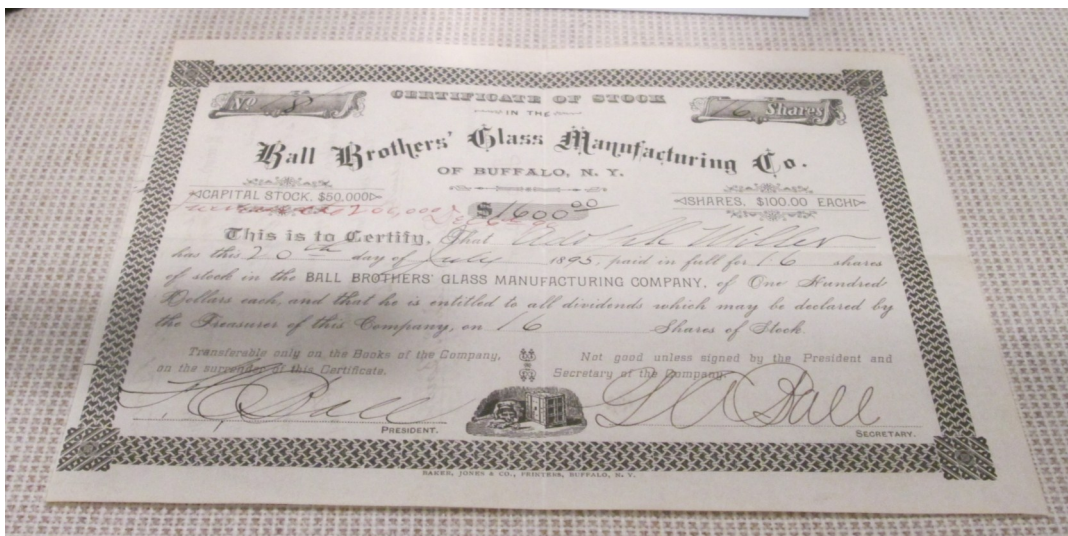 No 8
CERTIFICATE OF STOCK
16 Shares
IN THE
Ball Brothers' Glass Manufacturing Co.
OF BUFFALO, N. Y.
CAPITAL STOCK. $50.000
$1600.00
SHARES, $100.00 EACH
This is to Certify, That Miller
has this 20th day of July 1895, paid in full for 16 shares
of stock in the BALL BROTHERS' GLASS MANUFACTURING COMPANY, of One Hundred
Dollars each, and that he is entitled to all dividends which may be declared by
the Treasurer of this Company, on 16 Shares of Stock
Transferable only on the Books of the Company,
on the surrender of this Certificate.
Not good unless signed by the President and
Secretary of the Company.
F C Ball
PRESIDENT.
G A Ball
SECRETARY.
BAKER, JONES & CO., PRINTERS, BUFFALO, N. Y.